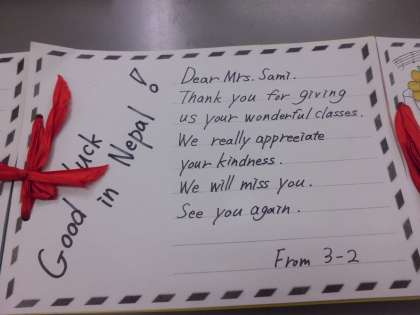 Good Luck
in Nepal!
Dear Mrs. Sami.
Thank you for giving
us your wonderful classes.
We really appreciate
your kindness.
We will miss you.
See you again.
From 3-2